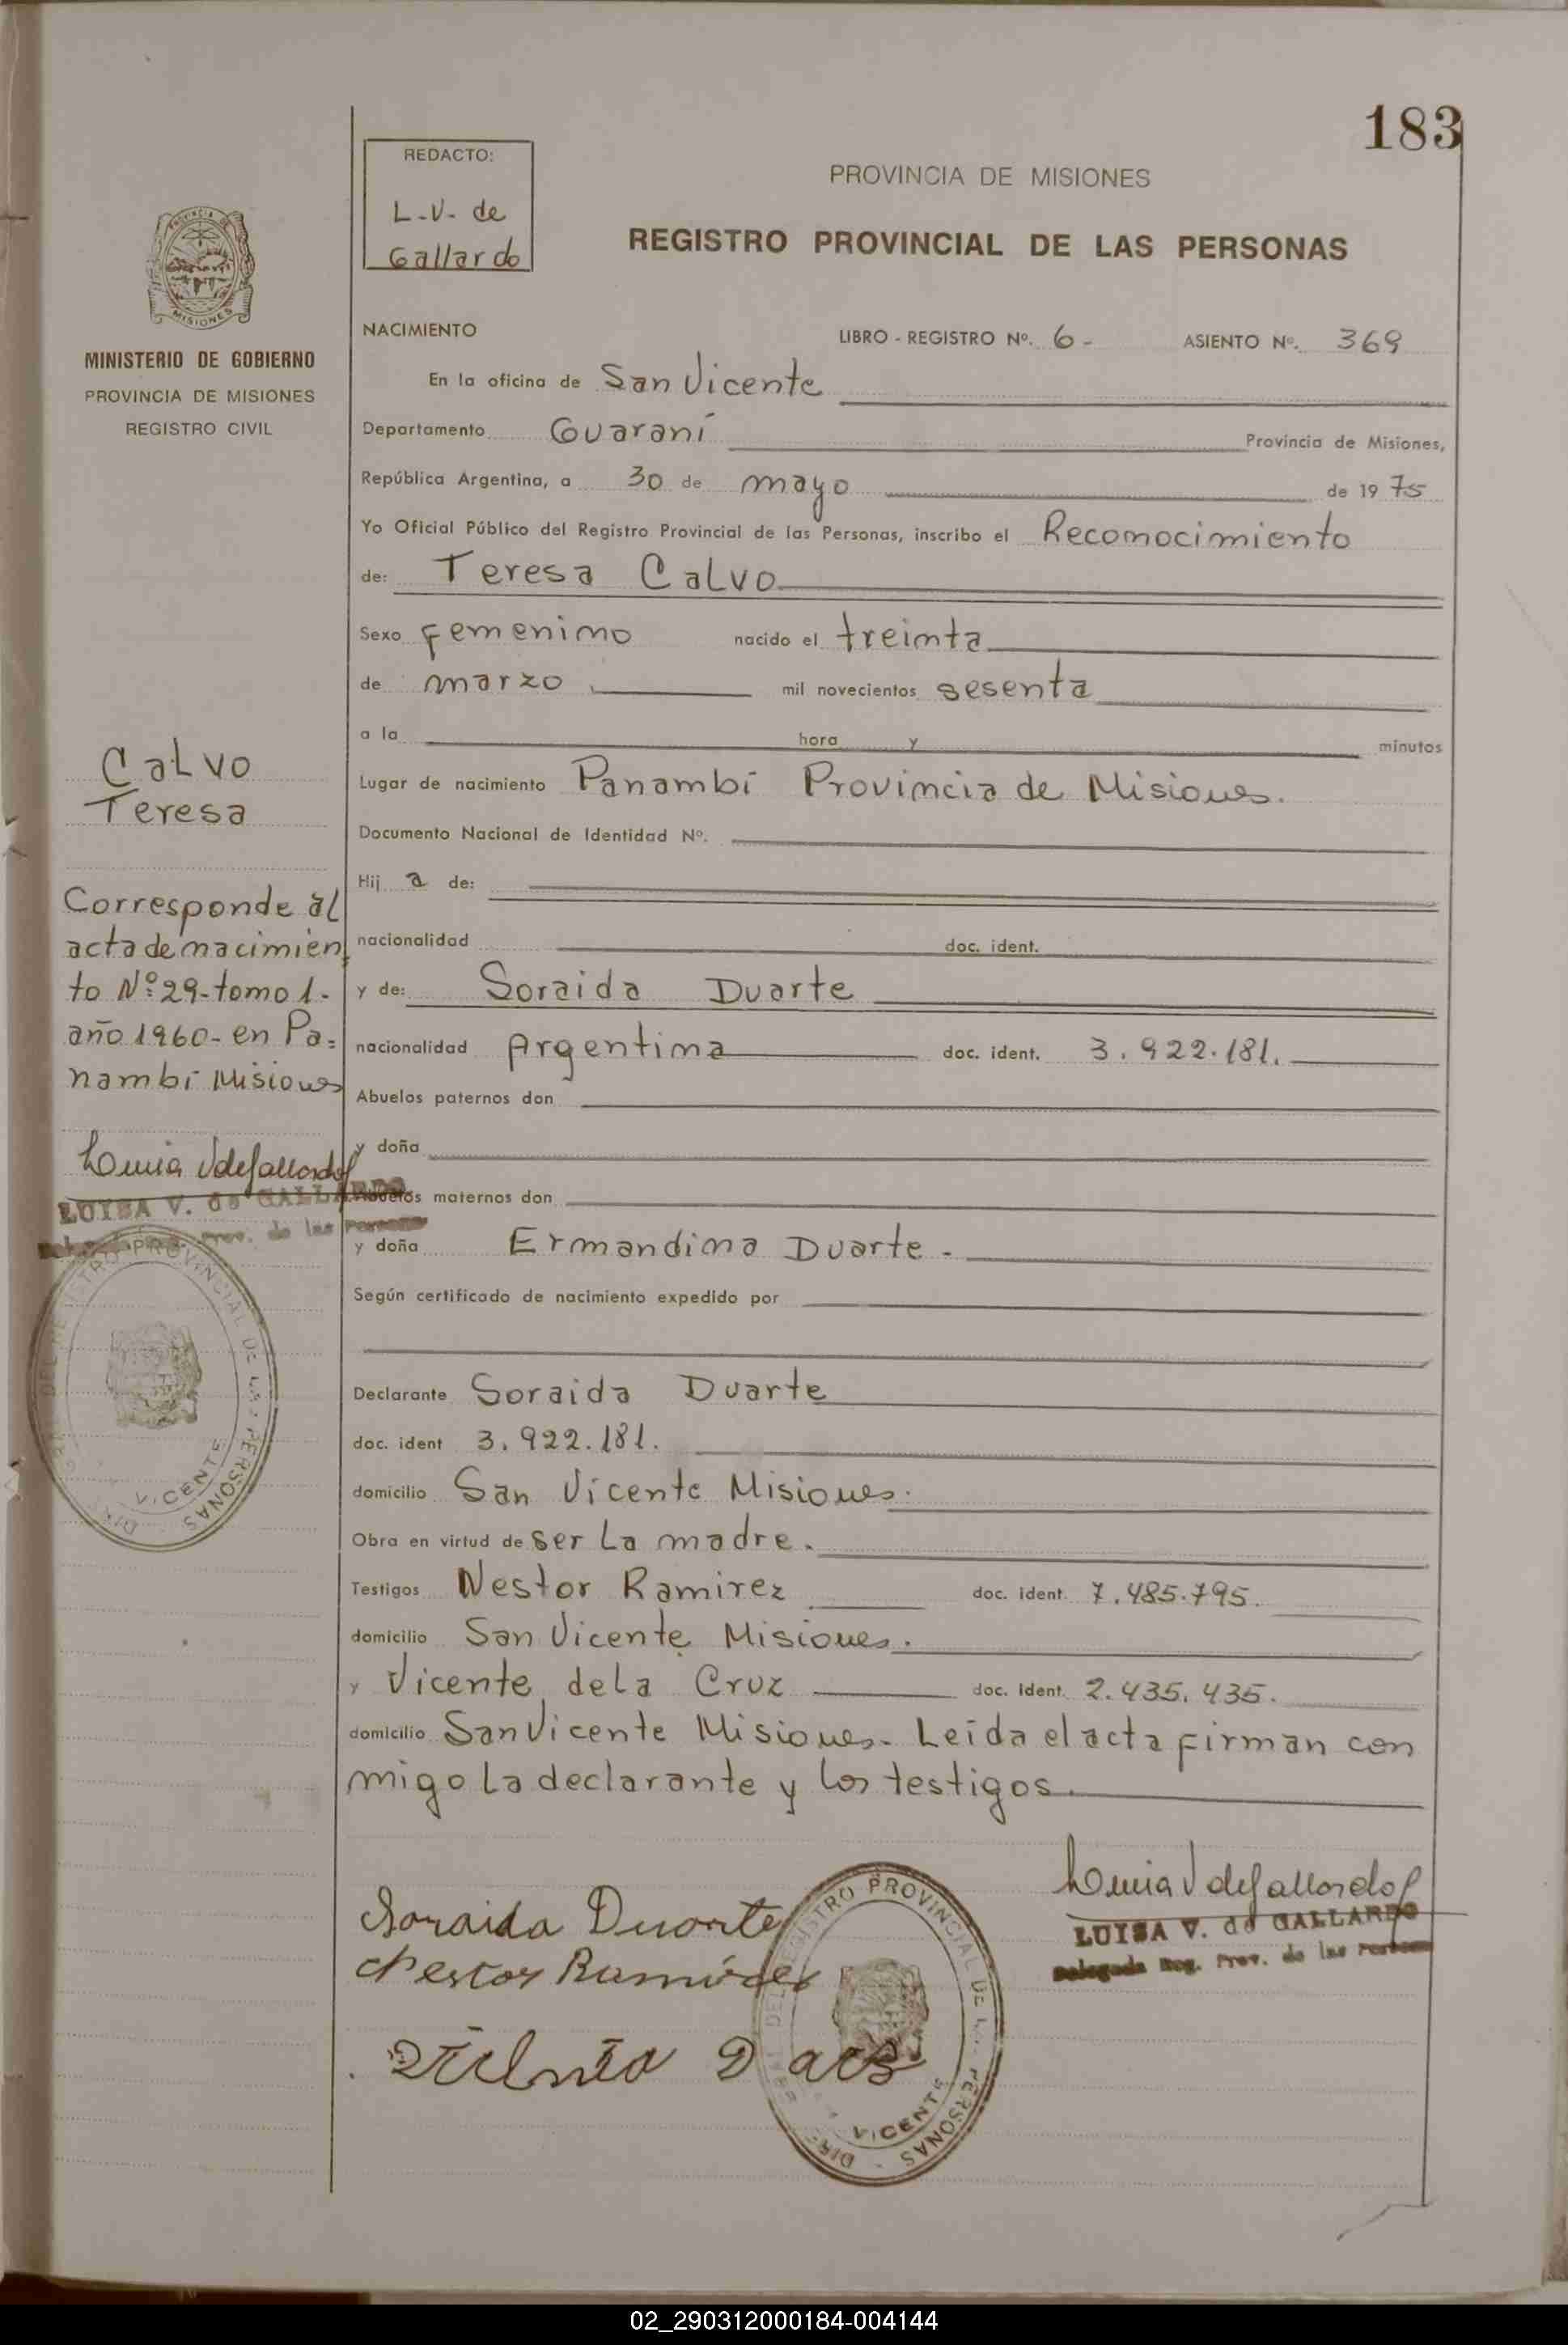 183
REDACTO:
L-V- de
Gallardo
PROVINCIA DE MISIONES
REGISTRO PROVINCIAL DE LAS PERSONAS
MISIONES
MINISTERIO DE GOBIERNO
PROVINCIA DE MISIONES
REGISTRO CIVIL
NACIMIENTO
LIBRO - REGISTRO Nº. 6 - ASIENTO Nº. 369
En la oficina de San Vicente
Departamento Guaraní Provincia de Misiones,
República Argentina, a 30 de mayo de 1975
Yo Oficial Público del Registro Provincial de las Personas, inscribo el Reconocimiento
de: Teresa Calvo
Sexo femenino nacido el treinta
de marzo mil novecientos sesenta
a la hora y minutos
Lugar de nacimiento Panambí Provincia de Misiones.
Documento Nacional de Identidad Nº.
Hij a de:
nacionalidad doc. ident.
y de: Soraida Duarte
nacionalidad Argentina doc. ident. 3.922.181.
Abuelos paternos don
y doña
Abuelos maternos don
y doña Ermandina Duarte -
Según certificado de nacimiento expedido por
Declarante Soraida Duarte
doc. ident 3.922.181.
domicilio San Vicente Misiones.
Obra en virtud de ser la madre.
Testigos Nestor Ramirez doc. ident. 7.485.795.
domicilio San Vicente Misiones.
y Vicente de la Cruz doc. ident. 2.435.435.
domicilio San Vicente Misiones- Leída el acta firman con
migo la declarante y los testigos.
Calvo
Teresa
Corresponde al
acta de nacimien
to Nº: 29-tomo 1-
año 1960- en Pa=
nambí Misiones
Luisa V de Gallardo
LUISA V. de GALLARDO
Prov. de las Personas
PROVINCIAL DE LAS PERSONAS
VICENTE
Soraida Duarte
Nestor Ramírez
REGISTRO PROVINCIAL DE LAS PERSONAS
VICENTE
Luisa V de Gallardo
LUISA V. de GALLARDO
Delegada Reg. Prov. de las Personas
02_290312000184-004144